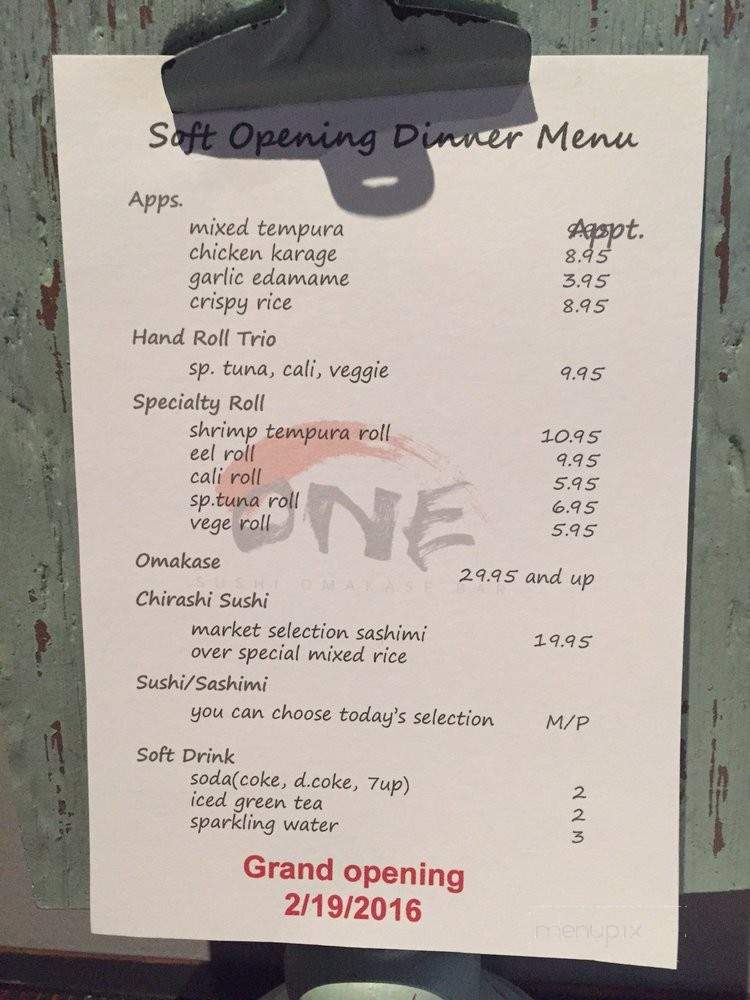 Soft Opening Dinner Menu
Apps.
Appt.
mixed tempura
chicken karage 8.95
garlic edamame 3.95
crispy rice 8.95
Hand Roll Trio
sp. tuna, cali, veggie 9.95
Specialty Roll
shrimp tempura roll 10.95
eel roll 9.95
cali roll 5.95
sp.tuna roll 6.95
vege roll 5.95
ONE
SUSHI OMAKASE BAR
Omakase 29.95 and up
Chirashi Sushi
market selection sashimi 19.95
over special mixed rice
Sushi/Sashimi
you can choose today's selection M/P
Soft Drink
soda(coke, d.coke, 7up) 2
iced green tea 2
sparkling water 3
Grand opening
2/19/2016
menupix